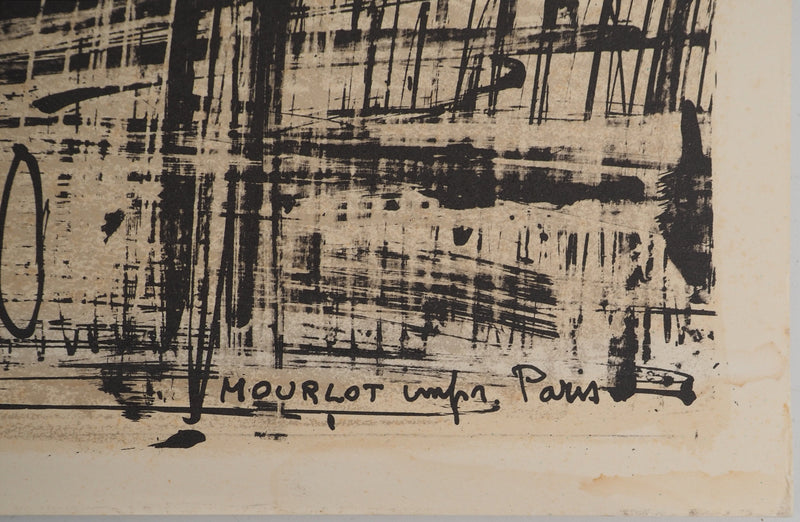 MOURLOT impr. Paris